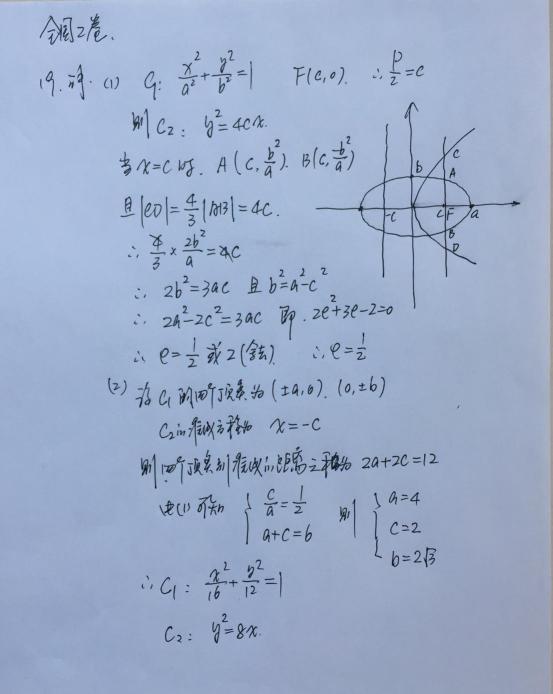 全国2卷.
19. 解. (1) C₁: x²/a² + y²/b² = 1  F(c,0). ∴ p/2 = c
则 C₂: y²=4cx.
当 x=c 时. A(c, b²/a). B(c, -b²/a)
且 |CD| = 4/3 |AB| = 4c.
∴ 4/3 × 2b²/a = 4c
∴ 2b²=3ac 且 b²=a²-c²
∴ 2a²-2c²=3ac 即. 2e²+3e-2=0
∴ e=1/2 或 2(舍去). ∴ e=1/2
b
C
A
-c
c F
a
B
D
(2) 设 C₁ 的四个顶点为 (±a,0). (0,±b)
C₂的准线方程为 x=-c
则四个顶点到准线的距离之和为 2a+2c=12
由(1)可知 { c/a = 1/2
a+c=6
则 { a=4
c=2
b=2√3
∴ C₁: x²/16 + y²/12 = 1
C₂: y²=8x.